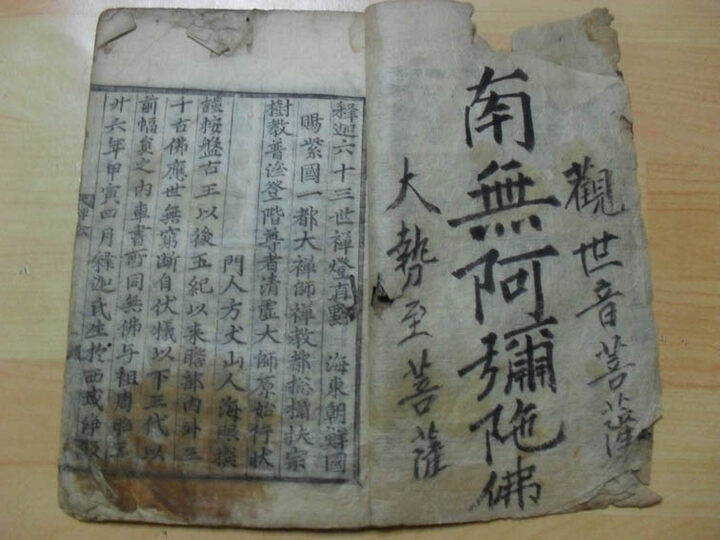 觀世音菩薩
南無阿彌陀佛
大勢至菩薩
釋迦六十三世禪燈直點 海東朝鮮國
賜紫國一都大禪師禪教都捴攝扶宗
樹教普濟登階尊者清虛大師原始行狀
門人方丈山人海眼撰
謹按盤古王以後五紀以來瞻部內外三
千古佛應世無窮斷自伏犧以下三代以
前幅員之內車書所同無佛與祖周昭王
廿六年甲寅四月釋迦氏生於西域即